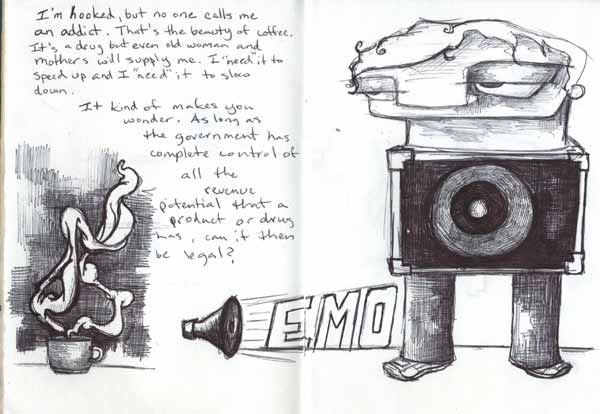 I'm hooked, but no one calls me
an addict. That's the beauty of coffee.
It's a drug but even old woman and
mothers will supply me. I "need" it to
speed up and I "need" it to slow
down.
It kind of makes you
wonder. As long as
the government has
complete control of
all the
revenue
potential that a
product or drug
has, can it then
be legal?
EMO